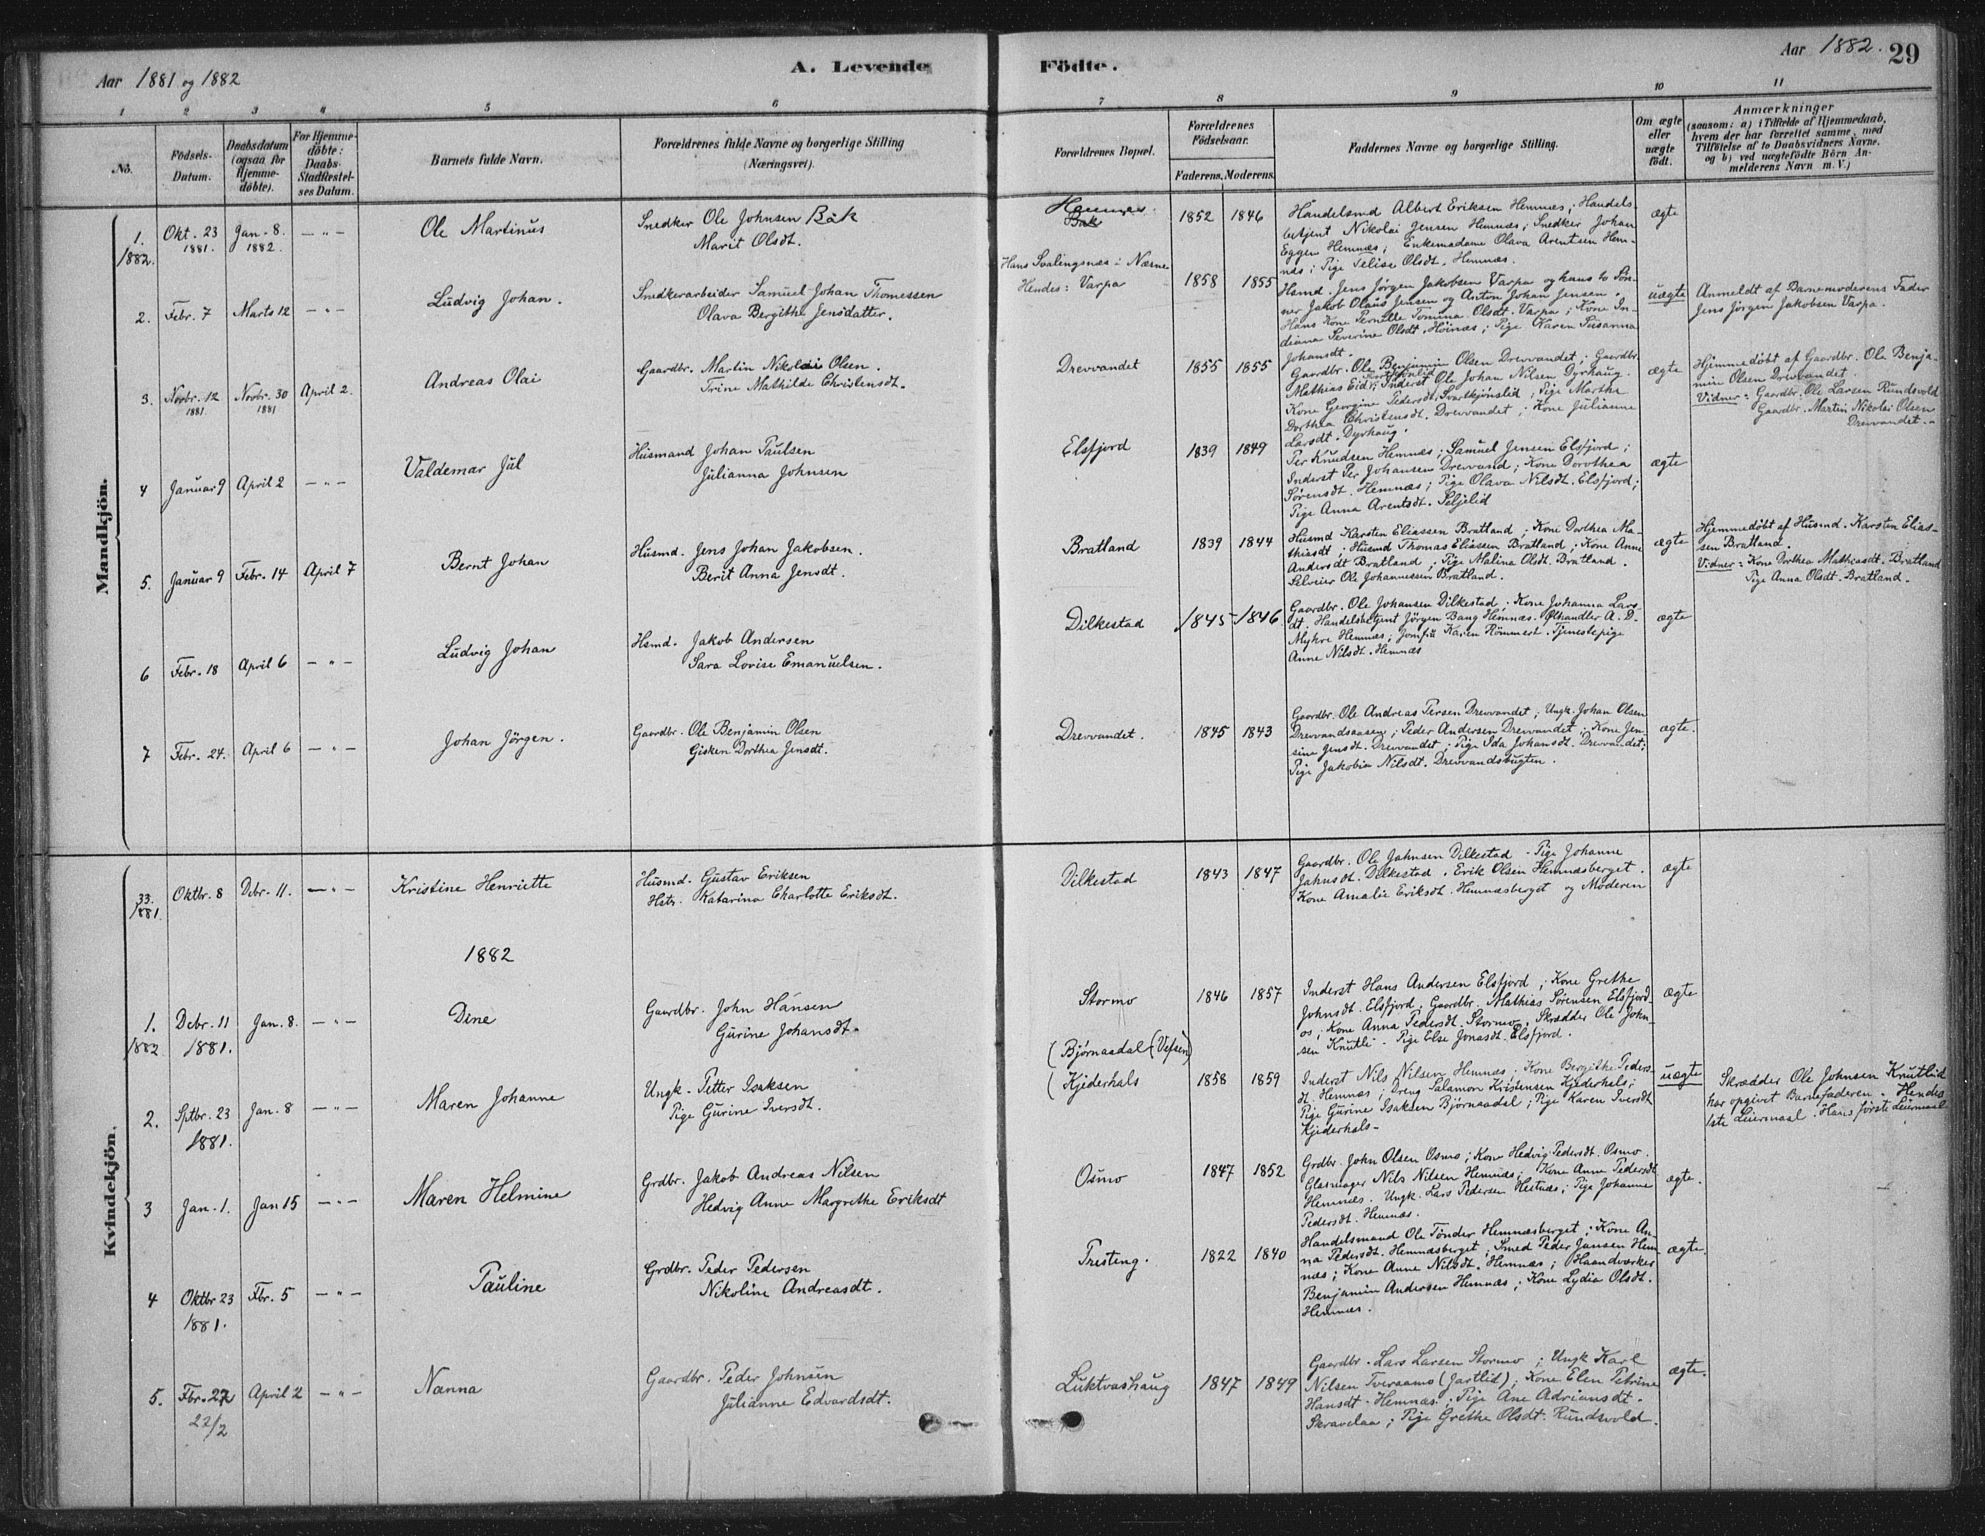 Aar 1881 og 1882
A. Levende
Födte.
Aar 1882.
29
1
2
3
4
5
6
7
8
9
10
11
No.
Födsels-
Datum.
Daabsdatum
(ogsaa for
Hjemme-
döbte).
For Hjemme-
döbte:
Daabs-
Stadfæstel-
ses Datum.
Barnets fulde Navn.
Forældrenes fulde Navne og borgerlige Stilling
(Næringsvei).
Forældrenes Bopæl.
Forældrenes
Födselsaar.
Faderens.
Moderens.
Faddernes Navne og borgerlige Stilling.
Om ægte
eller
uægte
födt.
Anmærkninger
(saasom: a) i Tilfælde af Hjemmedaab,
hvem der har forrettet samme, med
Tilföielse af to Daabsvidners Navne,
og b) ved uægtefödte Börn An-
melderens Navn m. V.)
Mandkjön.
1.
1882.
Okt. 23
1881.
Jan. 8.
1882.
— " —
Ole Martinus
Snedker Ole Johnsen Bak
Marit Olsdt.
Hemnes.
Bak
1852
1846
Handelsmd Albert Eriksen Hemnæs; Handels-
betjent Nikolai Jensen Hemnæs; Snedker Johan
Eggen Hemnæs; Enkemadame Olava Arentsen Hem-
næs; Pige Telise Olsdt. Hemnæs.
ægte
2.
Febr. 7
Marts 12
— " —
Ludvig Johan.
Smedkerarbeider Samuel Johan Thomessen
Olava Bergithe Jensdatter.
Hans Svalingsnæs i Næsne
Hendes: Varpa
1858
1855
Husmd. Jens Jörgen Jakobsen Varpa og hans to Søn-
ner Jakob Olaus Jensen og Anton Johan Jensen.
Hans Kone Pernille Tomina Olsdt. Varpa; Kone In-
diana Severine Olsdt. Höinæs; Pige Karen Susanna
Johansdt.
uægte
Anmeldt af Barnemoderens Fader
Jens Jörgen Jakobsen Varpa.
3.
Novbr. 12
1881.
Novbr. 30
1881
April 2.
Andreas Olai
Gaardbr. Martin Nikolai Olsen.
Trine Mathilde Christensdt.
Drevvandet
1855
1855
Gaardbr. Ole Benjamin Olsen Drevvandet; Gaardbr.
Mathias Eid; Inderst Ole Johan Nilsen Dyrhaug.
Kone Georgine Pedersdt. Svartkjønslid; Pige Marthe
Dorthea Christensdt. Drevvandet; Kone Julianne
Larsdt. Dyrhaug.
ægte
Hjemmedøbt af Gaardbr. Ole Benja-
min Olsen Drevvandet.
Vidner: Gaardbr. Ole Larsen Rundsvold
Gaardbr. Martin Nikolai Olsen
Drevvandet.
4
Januar 9
April 2
— " —
Valdemar Jul
Husmand Johan Paulsen
Julianna Johnsen
Elsfjord
1839
1849
Per Knudsen Hemnæs; Samuel Jensen Elsfjord;
Inderst Per Johansen Drevvand; Kone Dorothea
Sørensdt. Hemnæs; Pige Olava Nilsdt. Elsfjord;
Pige Anna Arentsdt. Seljelid
ægte
5.
Januar 9
Febr. 14
April 7
Bernt Johan
Husmd. Jens Johan Jakobsen.
Berit Anna Jensdt.
Bratland
1839
1844
Husmd Karsten Eliassen Bratland; Kone Dorthea Ma-
thiasdt; Husmd Thomas Eliassen Bratland; Kone Anne
Andersdt Bratland; Pige Malina Olsdt. Bratland.
Selveier Ole Johannessen Bratland.
ægte
Hjemmedøbt af Husmd. Karsten Elias-
sen Bratland.
Vidner: Kone Dorthea Mathiasdt. Bratland
Pige Anna Olsdt. Bratland.
6
Febr. 18
April 6
— " —
Ludvig Johan
Hsmd. Jakob Andersen
Sara Lovise Emanuelsen.
Dilkestad
1845
1846
Gaardbr. Ole Johansen Dilkestad; Kone Johanna Lars-
dt. Handelsbetjent Jörgen Bang Hemnæs. Ølhandler A. D.
Mykre Hemnæs; Jomfru Karen Römmest. Tjenestepige
Anne Nilsdt. Hemnæs
ægte
7
Febr. 24.
April 6
— " —
Johan Jörgen.
Gaardbr. Ole Benjamin Olsen
Gisken Dorthea Jensdt.
Drevvandet.
1845
1843
Gaardbr. Ole Andreas Persen Drevvandet; Ungk. Johan Olsen
Drevvandsaasen; Peder Andersen Drevvandet; Kone Jen-
sine Jensdt. Drevvandet; Pige Ida Johansdt. Drevvandet;
Pige Jakobia Nilsdt. Drevvandsbugten.
ægte.
Kvindekjön.
33.
1881.
Oktbr. 8
Dcbr. 11.
— " —
Kristine Henriette
Husmd. Gustav Eriksen
Hstr. Katarina Charlotte Eriksdt.
Dilkestad
1843
1847
Gaardbr. Ole Jahnsen Dilkestad - Pige Johanne
Jahnsdt. Dilkestad. Erik Olsen Hemnæsberget.
Kone Amalie Eriksdt. Hemnæsberget og Moderen
ægte
1882
1.
1882
Dcbr. 11
1881.
Jan. 8.
— " —
Dine
Gaardbr. John Hansen
Gurine Johansdt.
Stormo
1846
1857
Inderst Hans Andersen Elsfjord; Kone Grethe
Johnsdt. Elsfjord, Gaardbr. Mathias Sørensen Elsfjord
os; Kone Anna Pedersdt. Stormo; Skrædder Ole John-
sen Knutli - Pige Else Jonasdt. Elsfjord.
ægte
2.
Sptbr. 23
1881.
Jan. 8
— " —
Maren Johanne
Ungk. Petter Isaksen
Pige Gurine Iversdt.
(Bjørnaadal (Vefsen)
(Kjederhals
1858
1859
Inderst Nils Nilsen Hemnæs; Kone Bergithe Peders-
dt. Hemnæs; Dreng Salamon Kristensen Kjederhals;
Pige Gurine Isaksen Bjørnaadal; Pige Karen Iversdt
Kjederhals-
uægte
Skrædder Ole Johnsen Knutlid
har opgivet Barnefaderen. Hendes
1ste Leiermaal. Hans første Leiermaal
3
Jan. 1.
Jan 15
— " —
Maren Helmine
Grdbr. Jakob Andreas Nilsen
Hedvig Anne Margrethe Eriksdt
Osmo
1847
1852
Grdbr. John Olsen Osmo; Kone Hedvig Pedersdt. Osmo.
Glasmager Nils Nilsen Hemnæs; Kone Anne Pedersdt
Hemnæs. Ungk. Lars Pedersen Hestnæs; Pige Johanne
Pedersdt. Hemnæs.
ægte.
4
Oktbr 23
1881.
Fbr. 5
— " —
Pauline
Grdbr. Peder Pedersen
Nikoline Andreasdt.
Tristeng.
1822
1840
Handelsmand Ole Tønder Hemnæsberget; Kone An-
na Pedersdt. Hemnæsberget; Smed Peder Jansen Hem-
næs; Kone Anne Nilsdt. Hemnæs; Haandværker
Benjamin Andersen Hemnæs; Kone Lydia Olsdt.
Hemnæs.
ægte.
5.
Fbr. 22
22/2
April 2
— " —
Nanna
Gaardbr. Peder Johnsen
Julianne Edvardsdt.
Luktvashaug
1847
1849
Gaardbr. Lars Larsen Stormo; Ungk Karl
Nilsen Tveraamo (Jartlid); Kone Elen Petrine
Hansdt. Hemnæs; Pige Ane Adriansdt.
Skravelaa; Pige Grethe Olsdt. Rundsvold.
ægte.